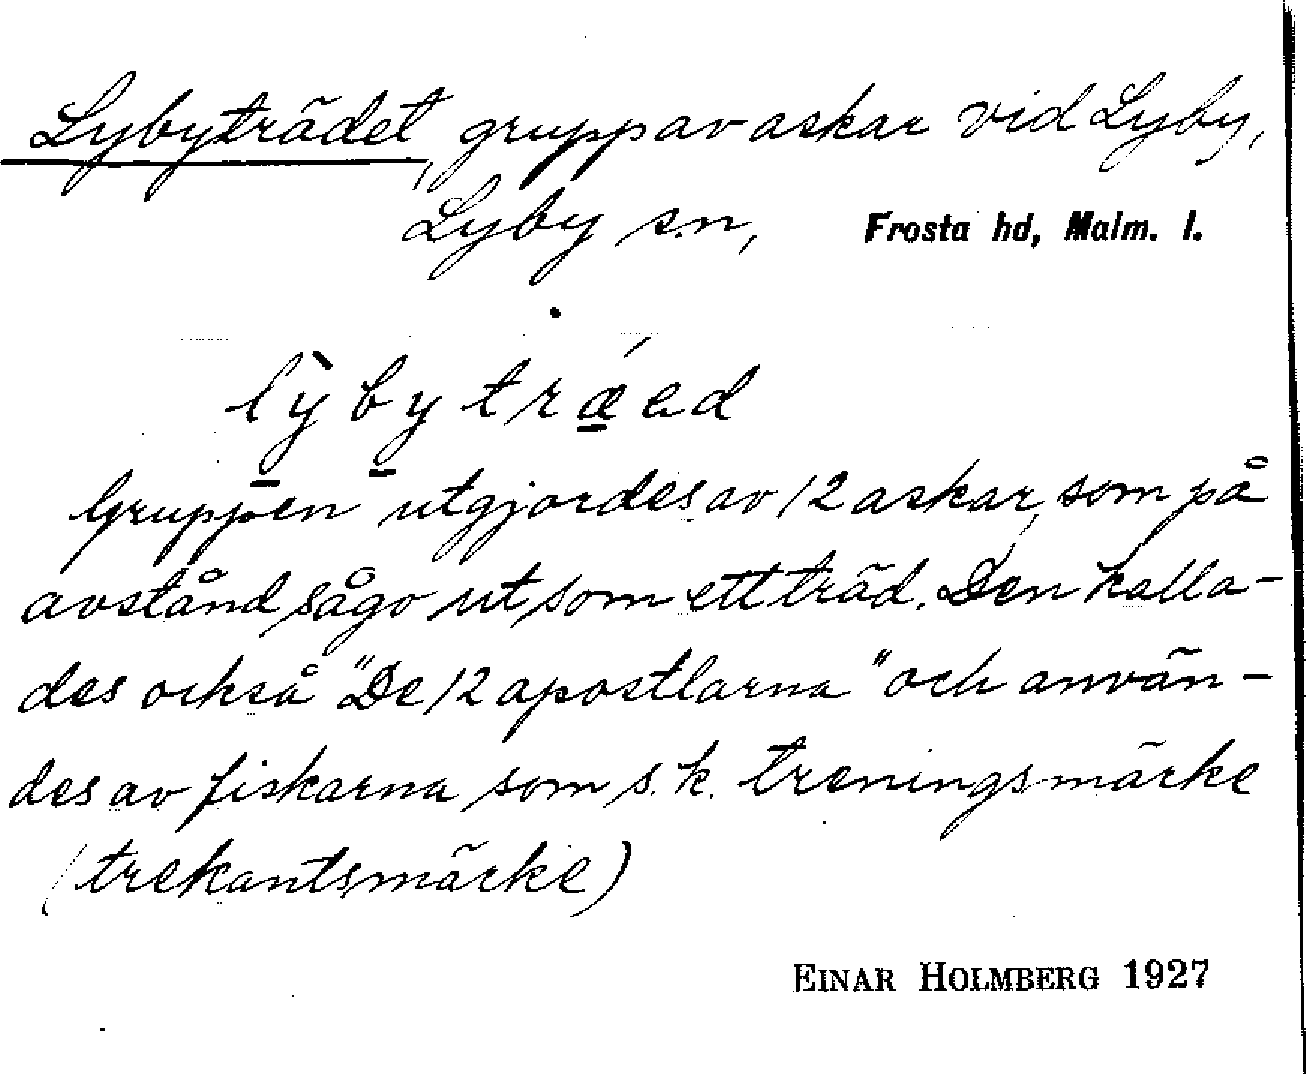 Lybyträdet, grupp av askar vid Lyby,
Lyby sn, Frosta hd, Malm. l.
lỳbytrǽəd
Gruppen utgjordes av 12 askar, som på
avstånd sågo ut som ett träd. Den kalla-
des också "De 12 apostlarna" och använ-
des av fiskarna som s.k. treningsmärke
(trekantsmärke)
EINAR HOLMBERG 1927